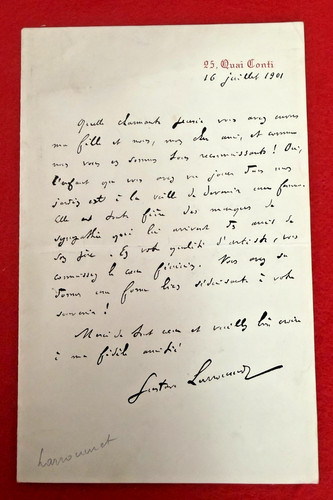 25, Quai Conti
16 juillet 1901
Quelle charmante pensée vous avez envers
ma fille et moi, mon cher ami, et comme
nous vous en sommes tous reconnaissants ! Oui,
l'enfant que vous avez vu jouer dans mes
jardins est à la veille de devenir une femme.
Elle est tout fière des marques de
sympathie qui lui arrivent des amis de
son père. En votre qualité d'artiste, vous
connaissez le cœur féminin. Vous avez su
donner une forme bien séduisante à votre
souvenir !
Merci de tout cœur et veuillez bien croire
à ma fidèle amitié
Gustave Larroumet
Larroumet